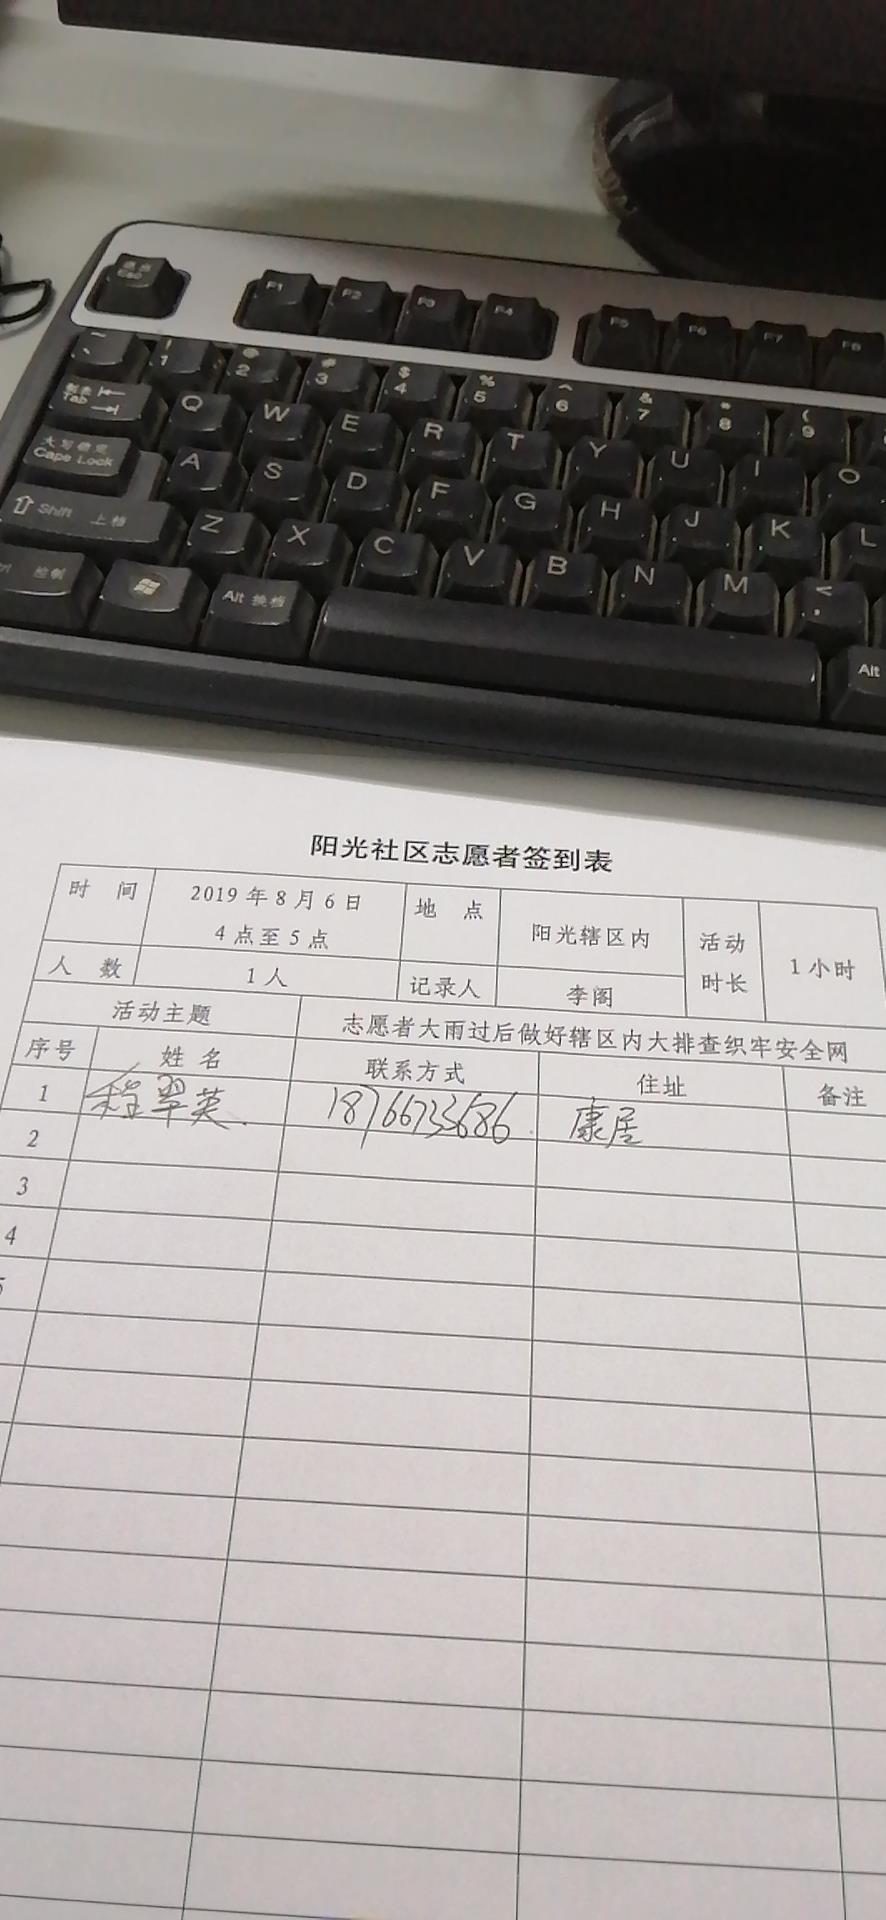 退出
Esc
F1 F2 F3 F4 F5 F6 F7 F8
~ ! @ # $ % ^ & * (
、 1 2 3 4 5 6 7 8 9
制表
Tab
Q W E R T Y U I O
大写锁定
Caps Lock
A S D F G H J K L
Shift 上档
Z X C V B N M <
控制
Alt 换档
Alt
阳光社区志愿者签到表
时 间 2019年8月6日 4点至5点 地 点 阳光辖区内 活动时长 1小时
人 数 1人 记录人 李阁
活动主题 志愿者大雨过后做好辖区内大排查织牢安全网
序号 姓名 联系方式 住址 备注
1 程翠英 18766733686 康居
2
3
4
5